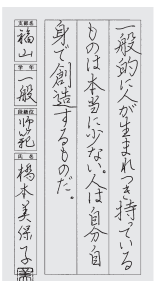 一般的に人が生まれつき持っている
ものは本当に少ない。人は自分自
身で創造するものだ。
支部名
福山
学年
一般
段級位
師範
氏名
橋本美保子